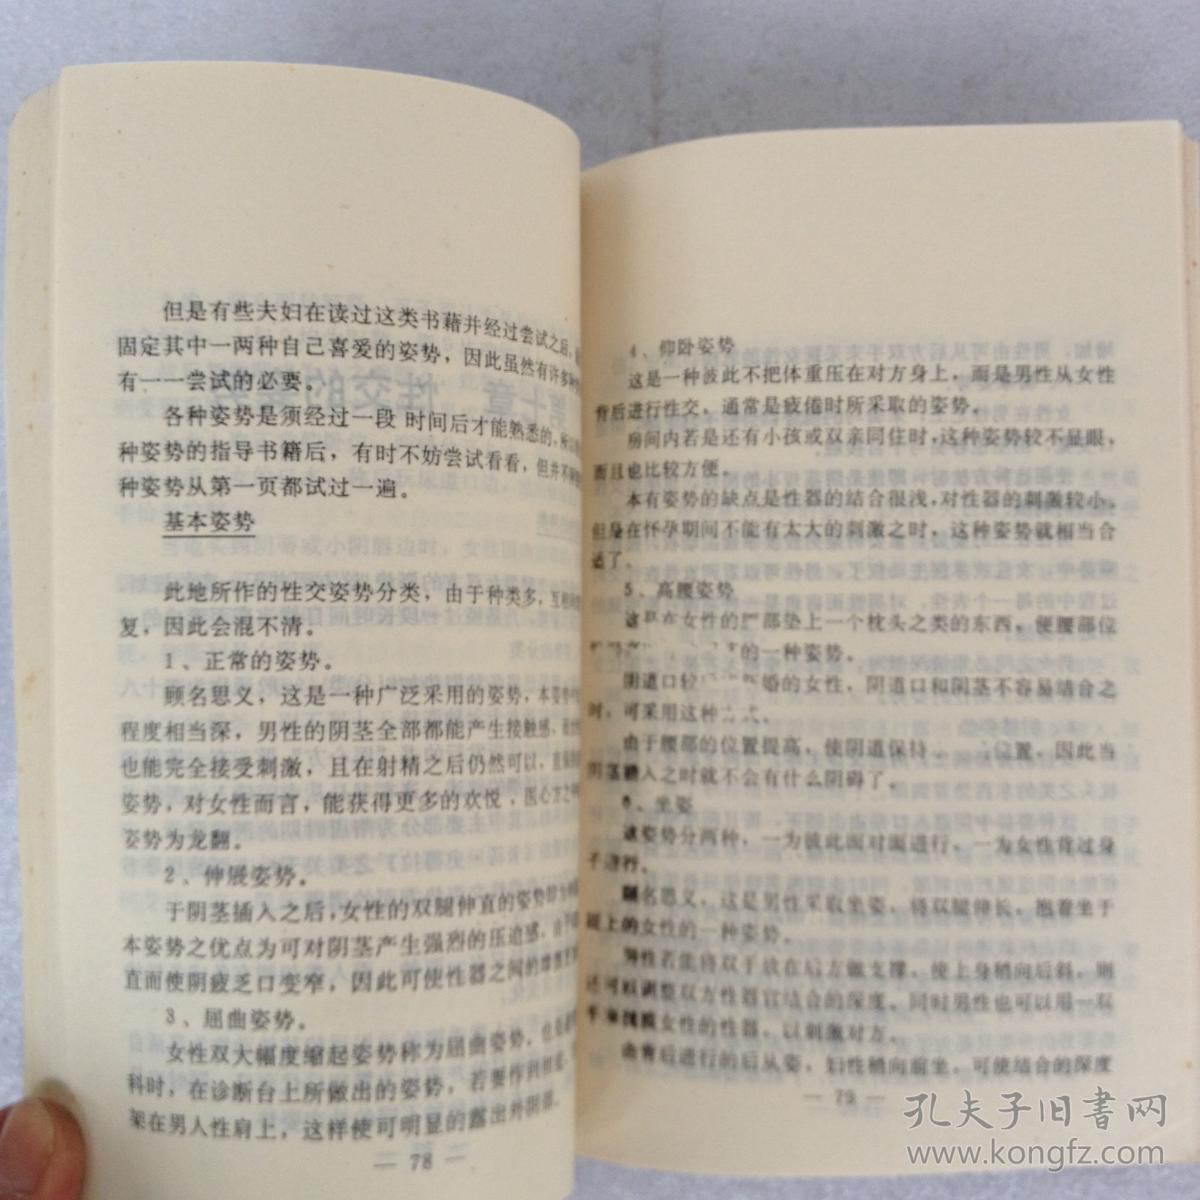 但是有些夫妇在读过这类书藉并经过尝试之后，
固定其中一两种自己喜爱的姿势，因此虽然有许多
有一一尝试的必要。
各种姿势是须经过一段 时间后才能熟悉的，所以
种姿势的指导书籍后，有时不妨尝试看看，但并不
种姿势从第一页都试过一遍。
基本姿势
此地所作的性交姿势分类，由于种类多，互相
复，因此会混不清。
1、正常的姿势。
顾名思义，这是一种广泛采用的姿势，本姿势
程度相当深，男性的阴茎全部都能产生接触感，
也能完全接受刺激，且在射精之后仍然可以，
姿势，对女性而言，能获得更多的欢悦，医心方之
姿势为龙翻。
2、伸展姿势。
于阴茎插入之后，女性的双腿伸直的姿势即为
本姿势之优点为可对阴茎产生强烈的压迫感，由于
直而使阴疲乏口变窄，因此可使性器之间的摩擦
3、屈曲姿势。
女性双大幅度缩起姿势称为屈曲姿势，也
科时，在诊断台上所做出的姿势，若要作到
架在男人性肩上，这样使可明显的露出外阴部。
— 78 —
4、仰卧姿势
这是一种彼此不把体重压在对方身上，而是男性从女性
背后进行性交，通常是疲倦时所采取的姿势。
房间内若是还有小孩或双亲同住时，这种姿势较不显眼，
而且也比较方便。
本有姿势的缺点是性器的结合很浅，对性器的刺激较小，
但是在怀孕期间不能有太大的刺激之时，这种姿势就相当合
适了。
5、高腰姿势
这是在女性的 部垫上一个枕头之类的东西，使腰部位
的一种姿势。
阴道口较 婚的女性，阴道口和阴茎不容易结合之
时，可采用这种 式。
由于腰部的位置提高，使阴道保持 位置，因此当
阴茎 入之时就不会有什么阴碍了。
6、坐姿
这姿势分两种，一为彼此面对面进行，一为女性背过身
子进行。
顾名思义，这是男性采取坐姿，将双腿伸长，抱着坐于
腿上的女性的一种姿势。
男性若能将双手放在后方做支撑，使上身稍向后斜，则
还可以调整双方性器官结合的深度，同时男性也可以用一双
手来 女性的性器，以刺激对方。
由背后进行的后从姿，妇性稍向前坐，可使结合的深度
— 79 —
孔夫子旧书网
www.kongfz.com